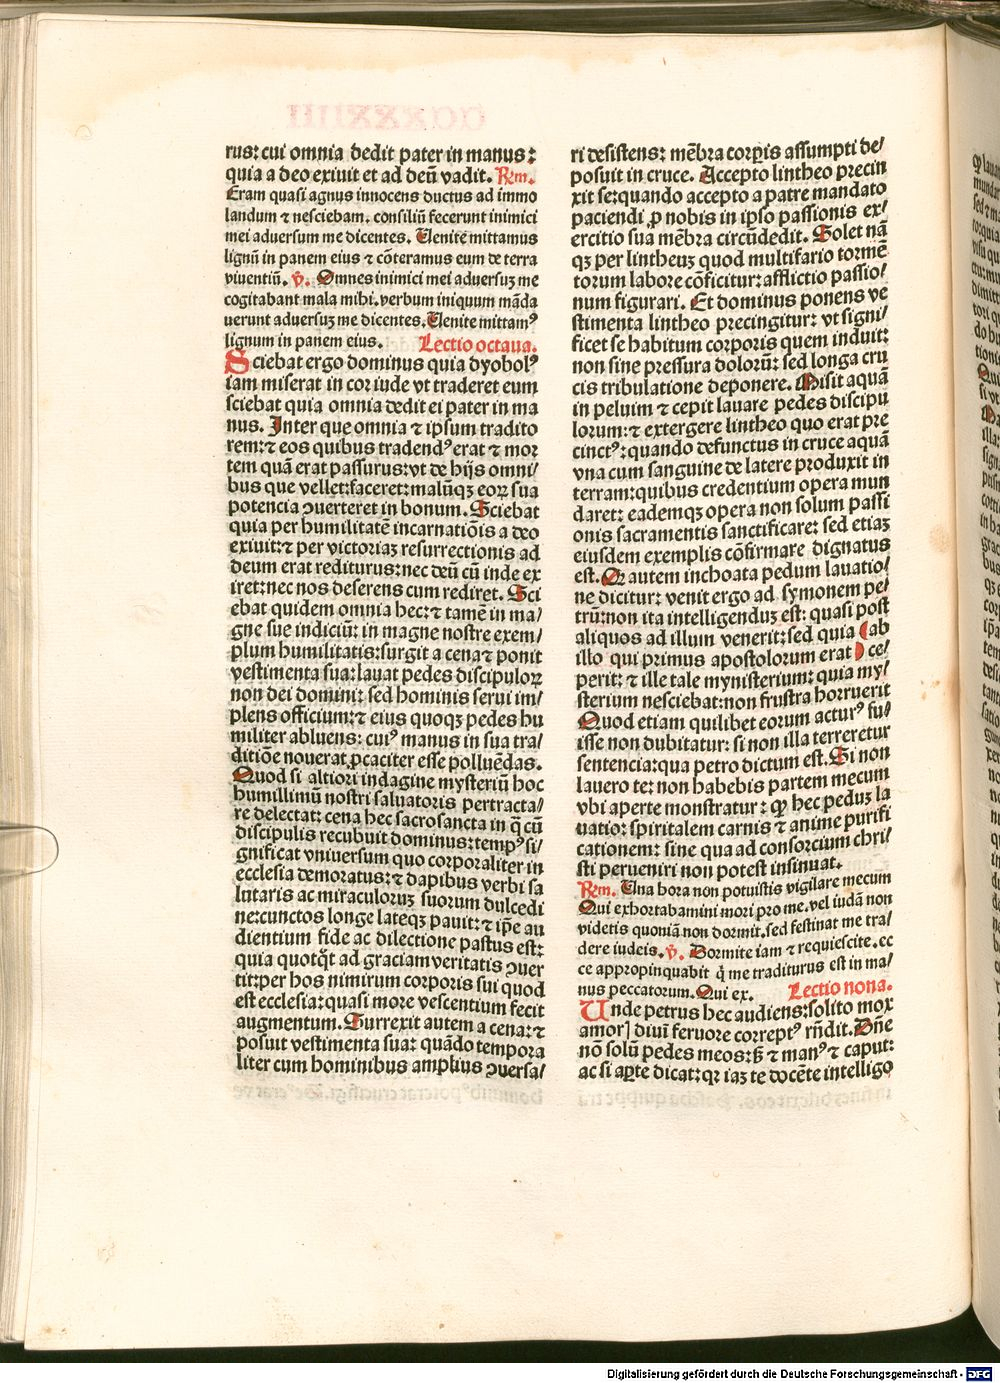 rus: cui omnia dedit pater in manus:
quia a deo exiuit et ad deū vadit. Rm.
Eram quasi agnus innocens ductus ad immo
landum ⁊ nesciebam. consiliū fecerunt inimici
mei aduersum me dicentes. Uenite mittamus
lignū in panem eius ⁊ cōteramus eum de terra
viuentiū. v̄. Omnes inimici mei aduersuꝫ me
cogitabant mala mihi. verbum iniquum māda
uerunt aduersuꝫ me dicentes. Uenite mittamꝰ
lignum in panem eius. Lectio octaua.
Sciebat ergo dominus quia dyobolꝰ
iam miserat in cor iude vt traderet eum
sciebat quia omnia dedit ei pater in ma
nus. Inter que omnia ⁊ ipsum tradito
rem: ⁊ eos quibus tradendꝰ erat ⁊ mor
tem quā erat passurus: vt de hijs omni/
bus que vellet: faceret: malūqꝫ eoꝝ sua
potencia ꝯuerteret in bonum. Sciebat
quia per humilitatē incarnatiōis a deo
exiuit: ⁊ per victoriaꝫ resurrectionis ad
deum erat rediturus: nec deū cū inde ex
iret: nec nos deserens cum rediret. Sci
ebat quidem omnia hec: ⁊ tamē in ma/
gne sue indiciū: in magne nostre exem/
plum humilitatis: surgit a cena ⁊ ponit
vestimenta sua: lauat pedes discipuloꝝ
non dei domini: sed hominis serui im/
plens officium: ⁊ eius quoqꝫ pedes hu
militer abluens: cuiꝰ manus in sua tra/
ditiōe nouerat ꝓcaciter esse polluēdas.
Quod si altiori indagine mysteriū hoc
humillimū nostri saluatoris pertracta/
re delectat: cena hec sacrosancta in q̄ cū
discipulis recubuit dominus: tempꝰ si/
gnificat vniuersum quo corporaliter in
ecclesia demoratus: ⁊ dapibus verbi sa
lutaris ac miraculoruꝫ suorum dulcedi
ne: cunctos longe lateqꝫ pauit: ⁊ ip̄e au
dientium fide ac dilectione pastus est:
quia quotqt̄ ad graciam veritatis ꝯuer
tit: per hos nimirum corporis sui quod
est ecclesia: quasi more vescentium fecit
augmentum. Surrexit autem a cena: ⁊
posuit vestimenta sua: quādo tempora
liter cum hominibus amplius ꝯuersa/
ri desistens: mēbra corꝑis assumpti de/
posuit in cruce. Accepto lintheo precin
xit se: quando accepto a patre mandato
paciendi ꝓ nobis in ipso passionis ex/
ercitio sua mēbra circūdedit. Solet nā
qꝫ per lintheuꝫ quod multifario tormē
torum labore cōficitur: afflictio passio/
num figurari. Et dominus ponens ve
stimenta lintheo precingitur: vt signi/
ficet se habitum corporis quem induit:
non sine pressura dolorū: sed longa cru
cis tribulatione deponere. Misit aquā
in peluim ⁊ cepit lauare pedes discipu
lorum: ⁊ extergere lintheo quo erat pre
cinctꝰ: quando defunctus in cruce aquā
vna cum sanguine de latere produxit in
terram: quibus credentium opera mun
daret: eademqꝫ opera non solum passi
onis sacramentis sanctificare: sed etiaꝫ
eiusdem exemplis cōfirmare dignatus
est. Qꝛ autem inchoata pedum lauatio/
ne dicitur: venit ergo ad symonem pe/
trū: non ita intelligenduꝫ est: quasi post
aliquos ad illum venerit: sed quia (ab
illo qui primus apostolorum erat) ce/
perit: ⁊ ille tale mynisterium: quia my/
sterium nesciebat: non frustra horruerit
Quod etiam quilibet eorum acturꝰ fu/
isse non dubitatur: si non illa terreretur
sentencia: qua petro dictum est. Si non
lauero te: non habebis partem mecum
vbi aperte monstratur: ꝙ hec peduꝫ la
uatio: spiritalem carnis ⁊ anime purifi
cationem: sine qua ad consorcium chri/
sti perueniri non potest insinuat.
Rm. Una hora non potuistis vigilare mecum
Qui exhortabamini mori pro me. vel iudā non
videtis quoniā non dormit. sed festinat me tra/
dere iudeis. v̄. Dormite iam ⁊ requiescite. ec
ce appropinquabit q̄ me traditurus est in ma/
nus peccatorum. Qui ex. Lectio nona.
Unde petrus hec audiens: solito mox
amorꝭ diuī feruore correptꝰ rn̄dit. Dn̄e
nō solū pedes meos: sꝫ ⁊ manꝰ ⁊ caput:
ac si aꝑte dicat: qꝛ iaꝫ te docēte intelligo
Digitalisierung gefördert durch die Deutsche Forschungsgemeinschaft - DFG